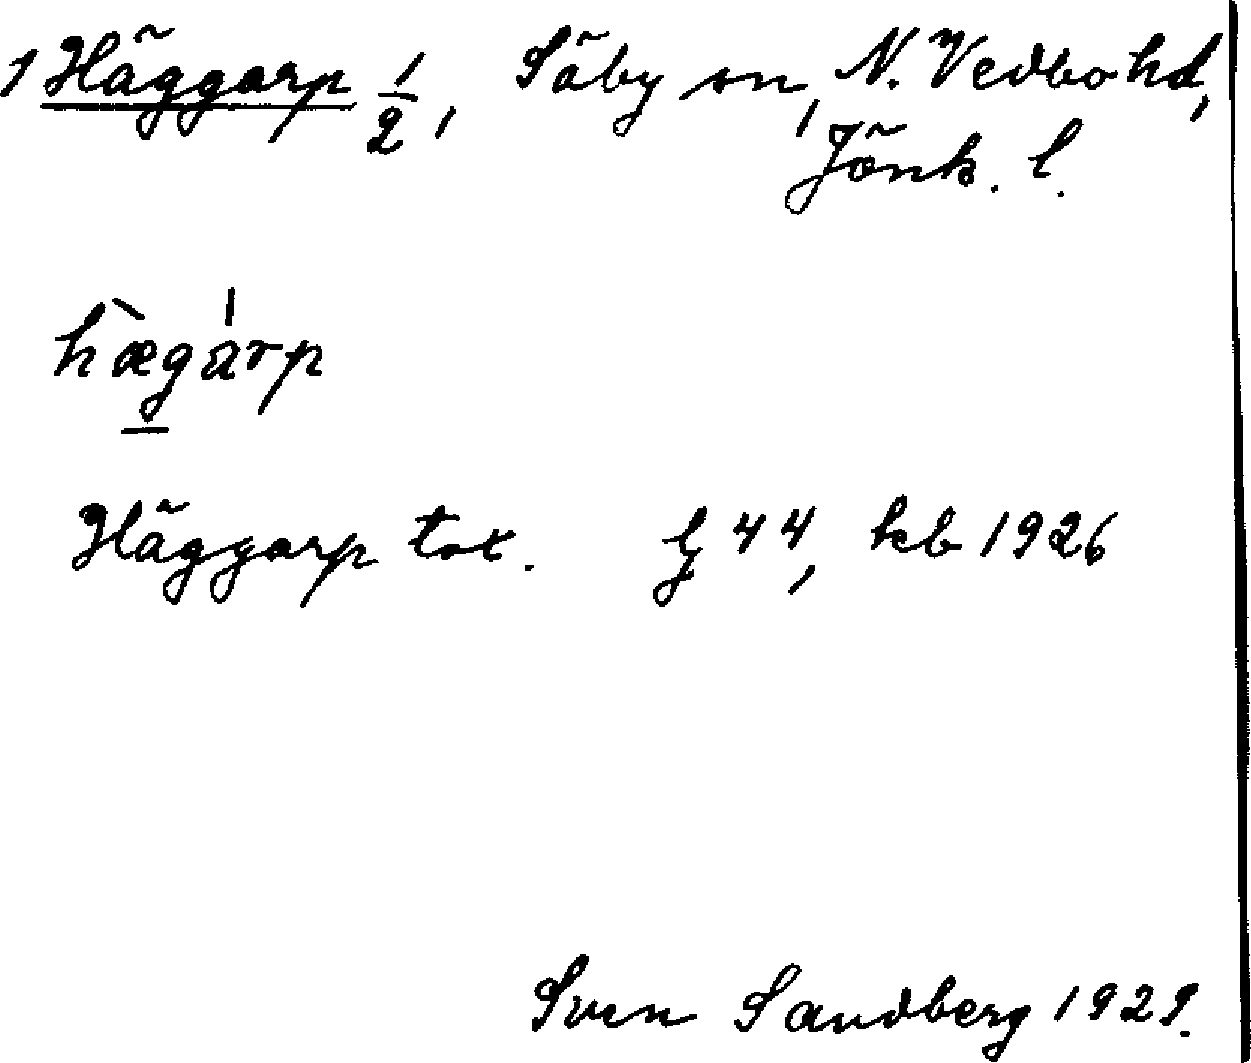 1 Häggarp 1/2, Säby sn, N. Vedbo hd,
Jönk. l.
hæ̀gárp
Häggarp tot. G 44, kb 1926
Sven Sandberg 1929.